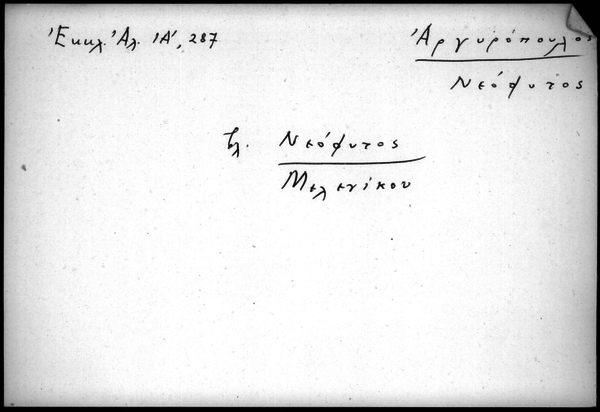 Ἐκκλ. Ἀλ. ΙΑ', 287
Ἀργυρόπουλος
Νεόφυτος
βλ. Νεόφυτος
Μελενίκου